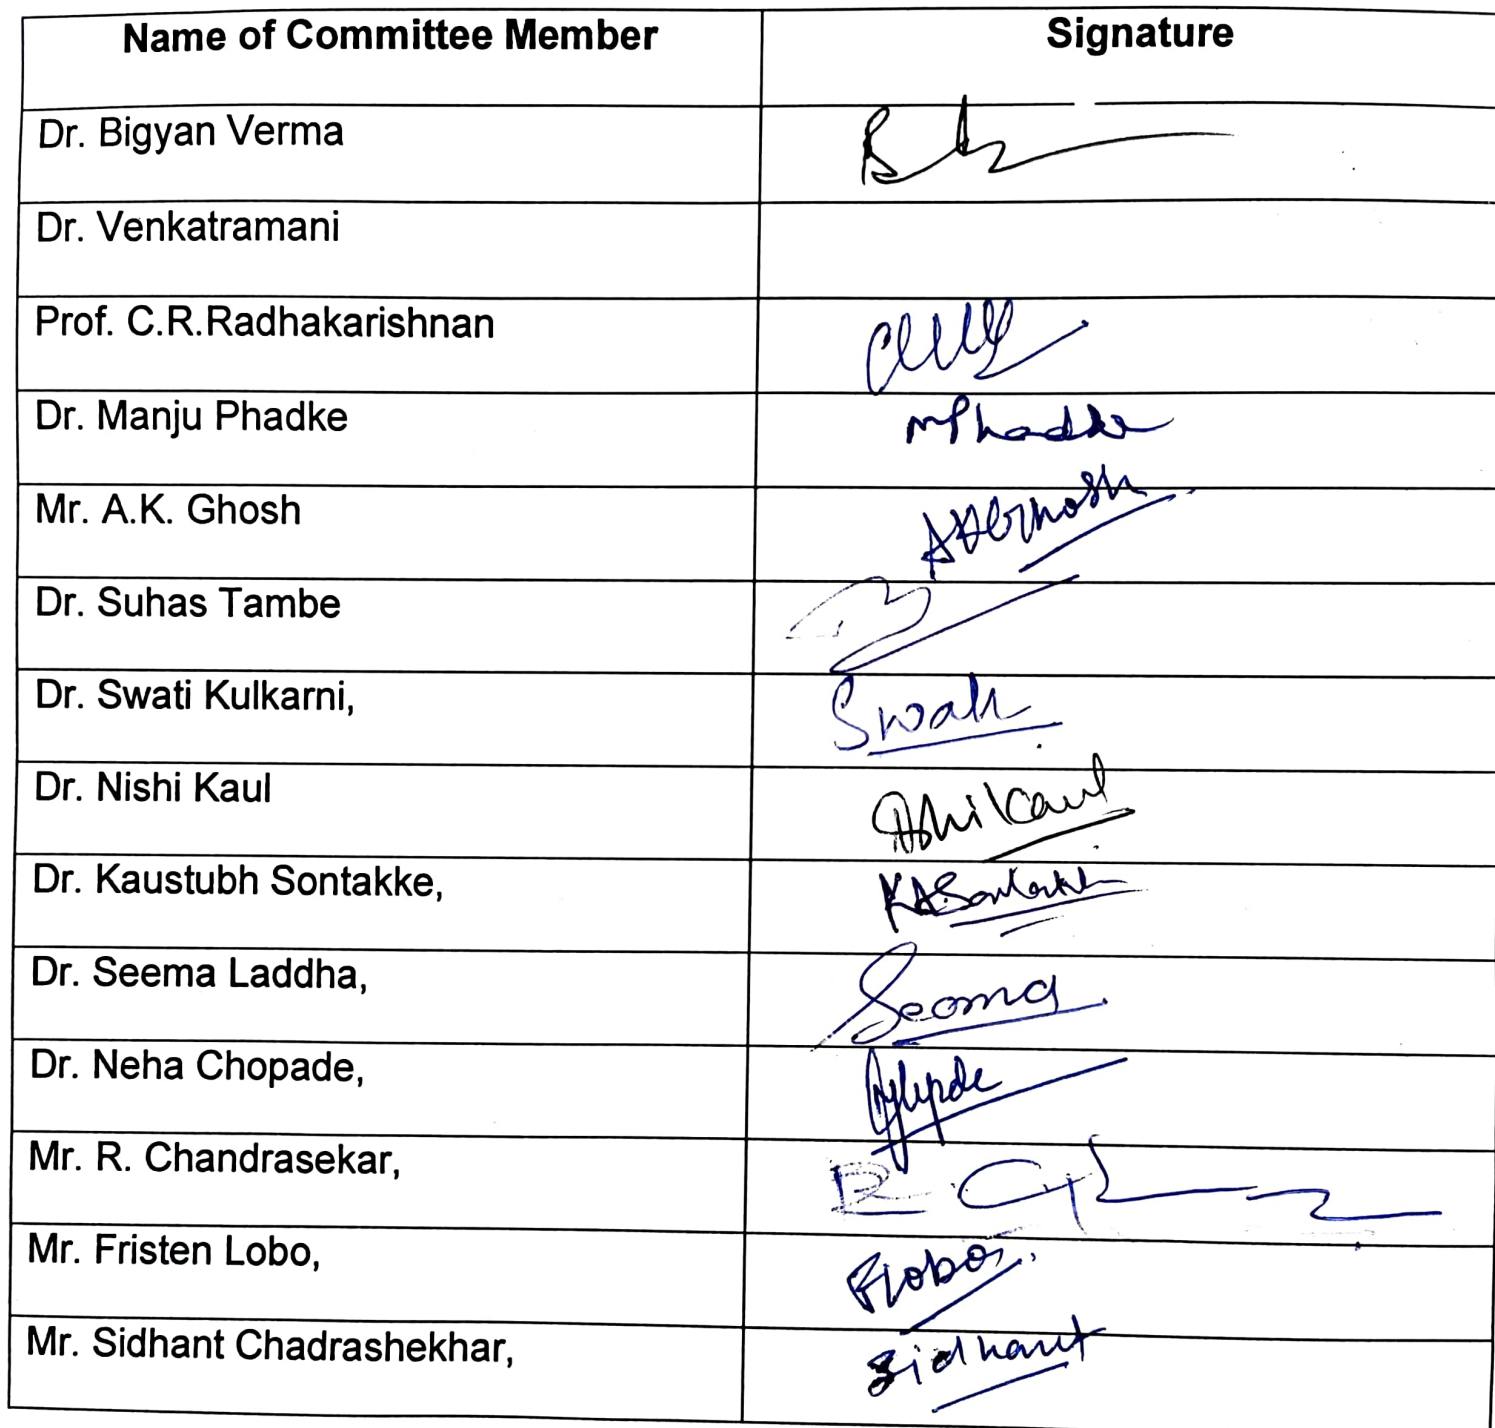 Name of Committee Member Signature
Dr. Bigyan Verma
Dr. Venkatramani
Prof. C.R.Radhakarishnan
Dr. Manju Phadke mPhadke
Mr. A.K. Ghosh AKGhosh
Dr. Suhas Tambe
Dr. Swati Kulkarni, Swati
Dr. Nishi Kaul
Dr. Kaustubh Sontakke, KASontakke
Dr. Seema Laddha, Seema
Dr. Neha Chopade,
Mr. R. Chandrasekar,
Mr. Fristen Lobo, Flobo
Mr. Sidhant Chadrashekhar, Sidhant